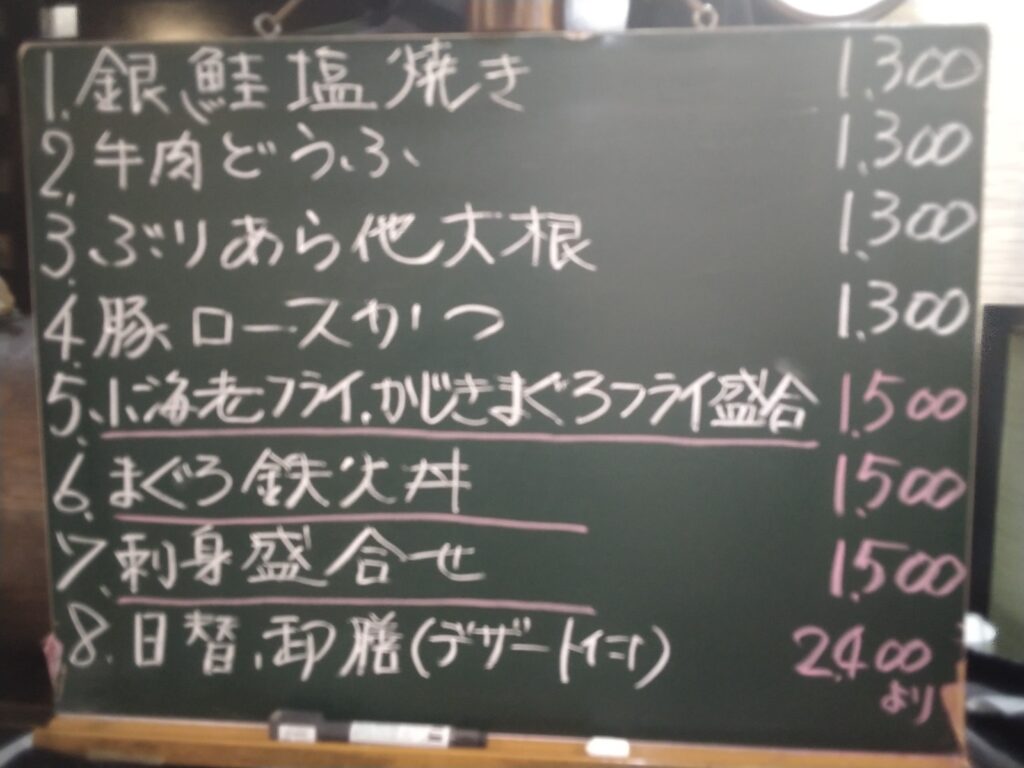 1.銀鮭塩焼き 1.300
2.牛肉どうふ 1.300
3.ぶりあら他大根 1.300
4.豚ロースかつ 1.300
5.小海老フライ.かじきまぐろフライ盛合 1.500
6.まぐろ鉄火丼 1.500
7.刺身盛合せ 1.500
8.日替御膳(デザート付) 2.400
より